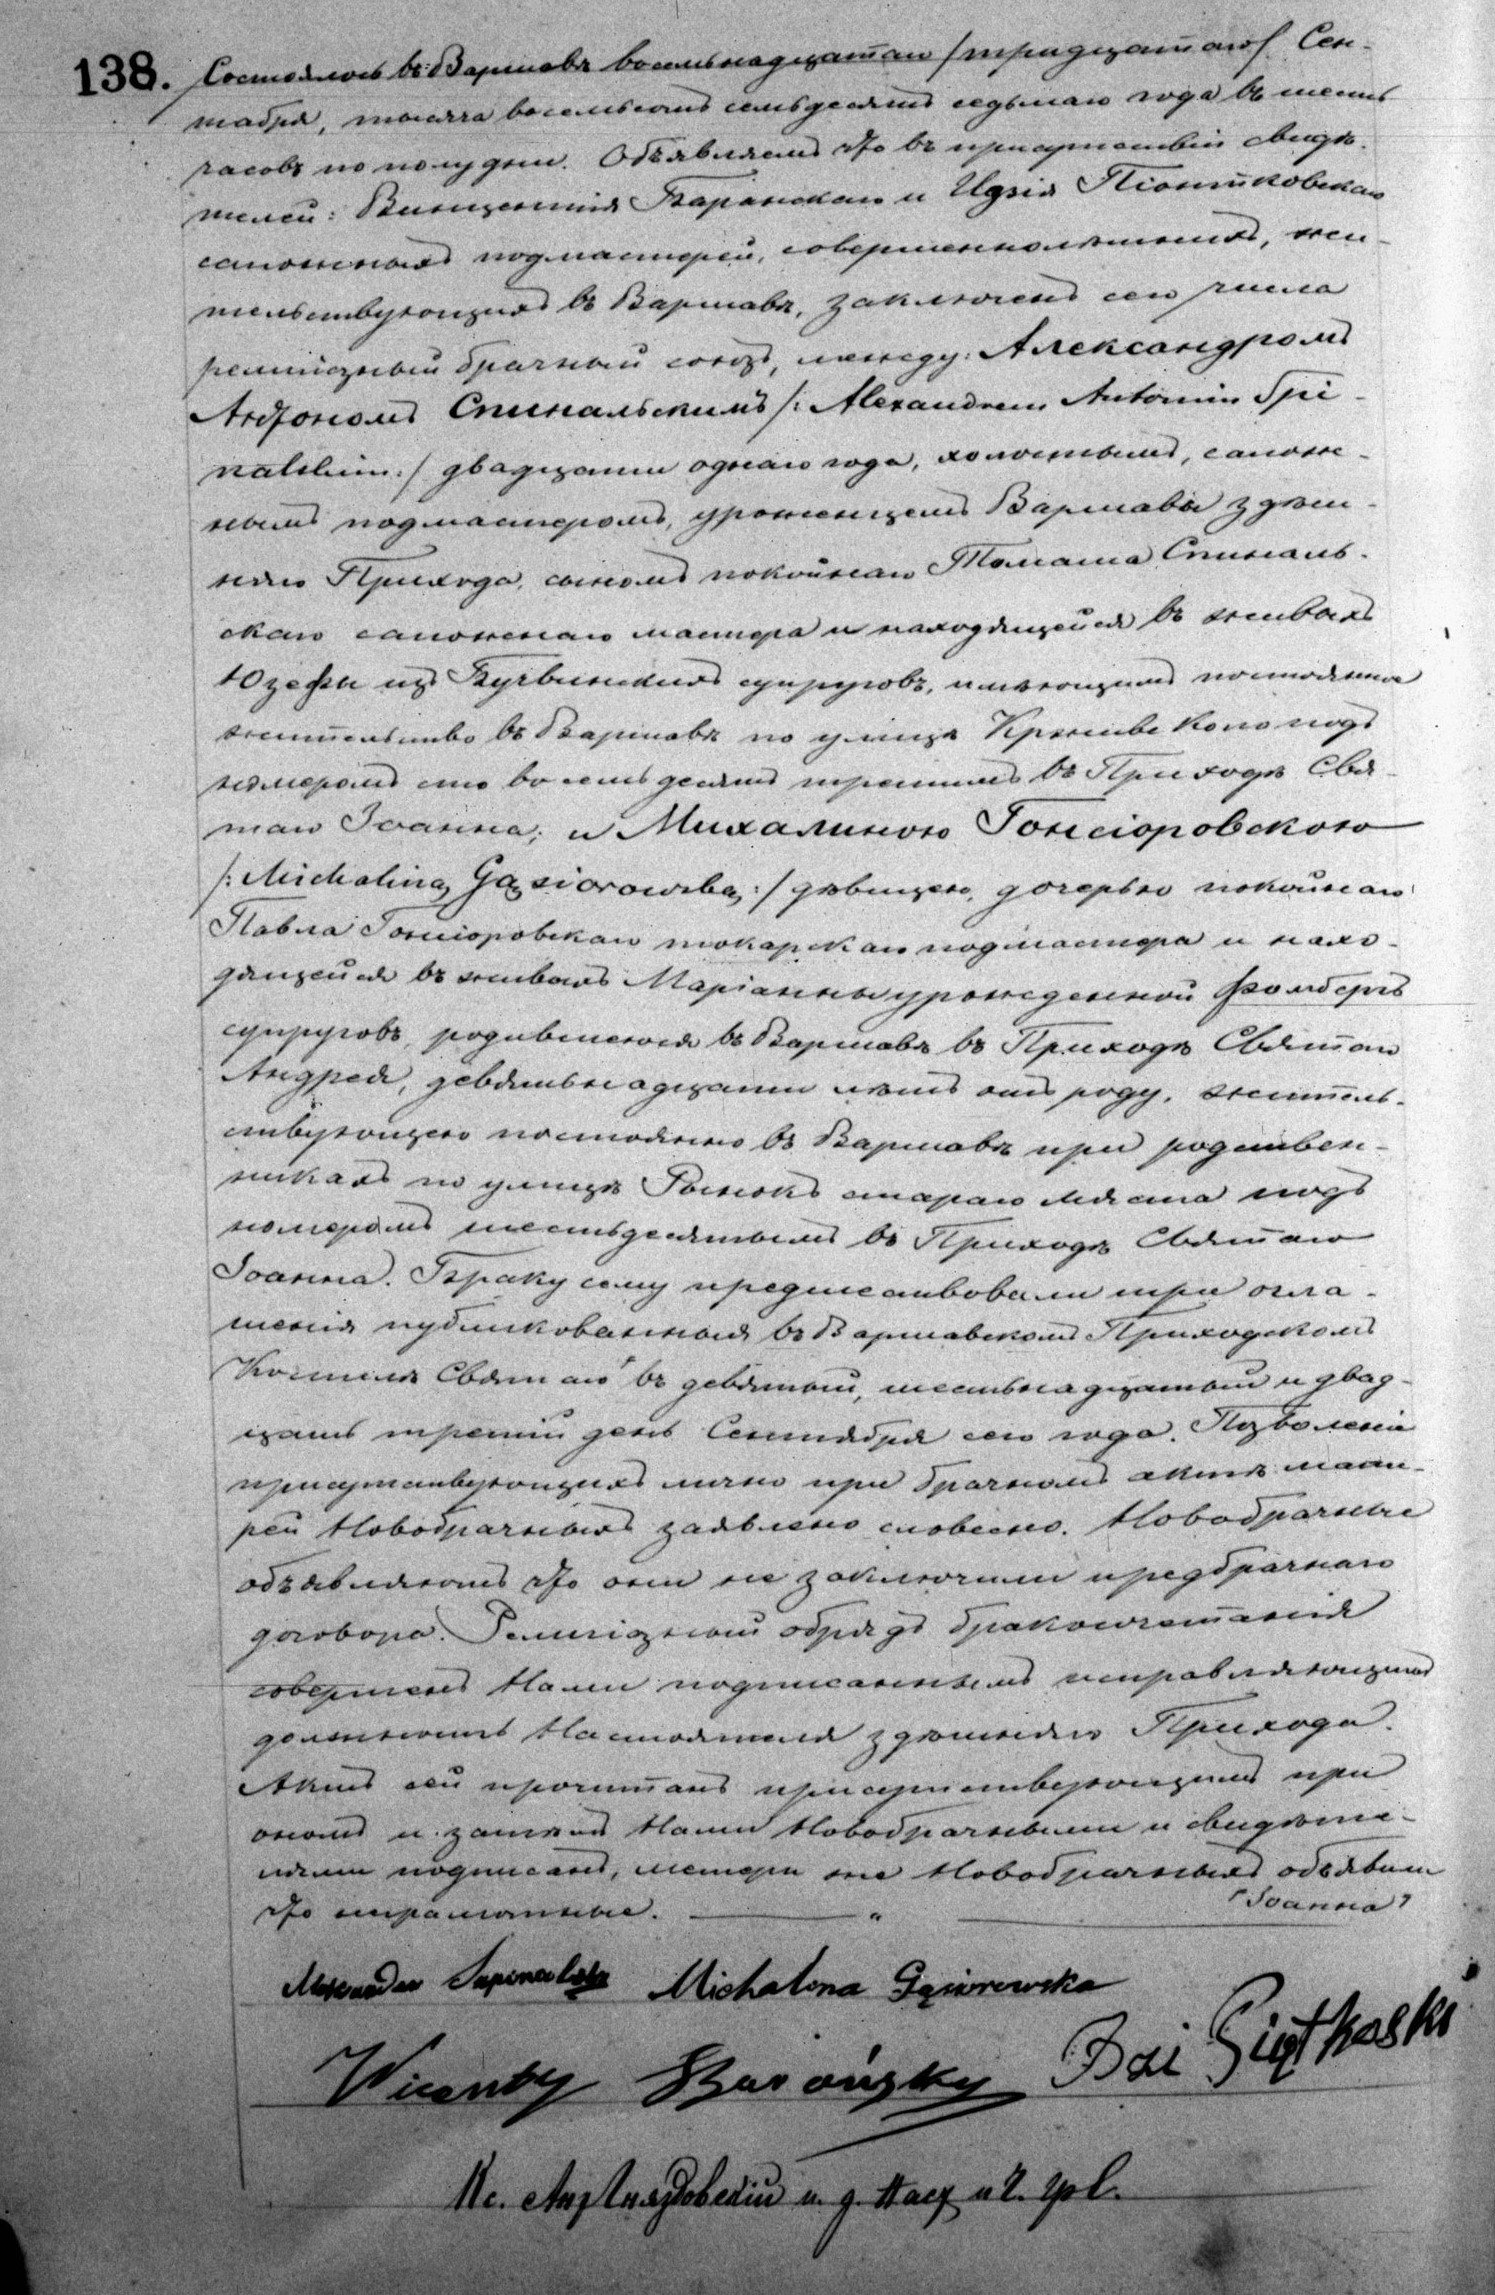 138. Состоялось въ Варшавѣ восемьнадцатаго /тридцатаго/ Сен-
тября, тысяча восемьсотъ семьдесятъ седьмаго года въ шесть
часовъ по полудни. Объявляемъ что въ присутствіи свидѣ-
телей: Винцентія Баранскаго и Идзія Піонтковскаго
сапожныхъ подмастерей, совершеннолѣтнихъ, жи-
тельствующихъ въ Варшавѣ, заключенъ сего числа
религіозный брачный союзъ, между: Александромъ
Антономъ Спинальскимъ /: Alexandrem Antonim Spi-
nalskim :/ двадцати однаго года, холостымъ, сапож-
нымъ подмастеромъ, уроженцемъ Варшавы здѣш-
няго Прихода, сыномъ покойнаго Томаша Спиналь-
скаго сапожнаго мастера и находящейся въ живыхъ
Юзефы изъ супруговъ, имѣющимъ постоянное
жительство въ Варшавѣ по улицѣ Крживе Коло подъ
номеромъ сто восемьдесятъ третимъ въ Приходѣ Свя-
таго Іоанна; и Михалиною Гонсіоровскою
/: Michaliną Gąsiorowską :/ дѣвицею, дочерью покойнаго
Павла Гонсіоровскаго токарскаго подмастера и нахо-
дящейся въ живыхъ Маріанны урожденной Фомбергъ
супруговъ, родившеюся въ Варшавѣ въ Приходѣ Святаго
Андрея, девятьнадцати лѣтъ отъ роду, житель-
ствующею постоянно въ Варшавѣ при родствен-
никахъ по улицѣ Рынокъ стараго Мѣста подъ
номеромъ шестьдесятымъ въ Приходѣ Святаго
Іоанна. Браку сему предшествовали три огла-
шенія публикованныя въ Варшавскомъ Приходскомъ
Костелѣ Святаго ⸢ въ девятый, шестьнадцатый и двад-
цать третій день Сентября сего года. Позволеніе
присутствующихъ лично при брачномъ актѣ мате-
рей Новобрачныхъ заявлено словесно. Новобрачные
объявляютъ что они не заключили предбрачнаго
договора. Религіозный обрядъ бракосочетанія
совершенъ Нами подписаннымъ исправляющимъ
должность Настоятеля здѣшняго Прихода.
Актъ сей прочитанъ присутствующимъ при
ономъ и затѣмъ Нами Новобрачными и свидѣте-
лями подписанъ, матери же Новобрачныхъ объявили
что неграмотные. — " — ⸢Іоанна⸣
Michalena Gąsiorowska
Wicenty Barański
Идзі Piątkoski
Кс. и. д. Наст. и Ч. Гр. С.